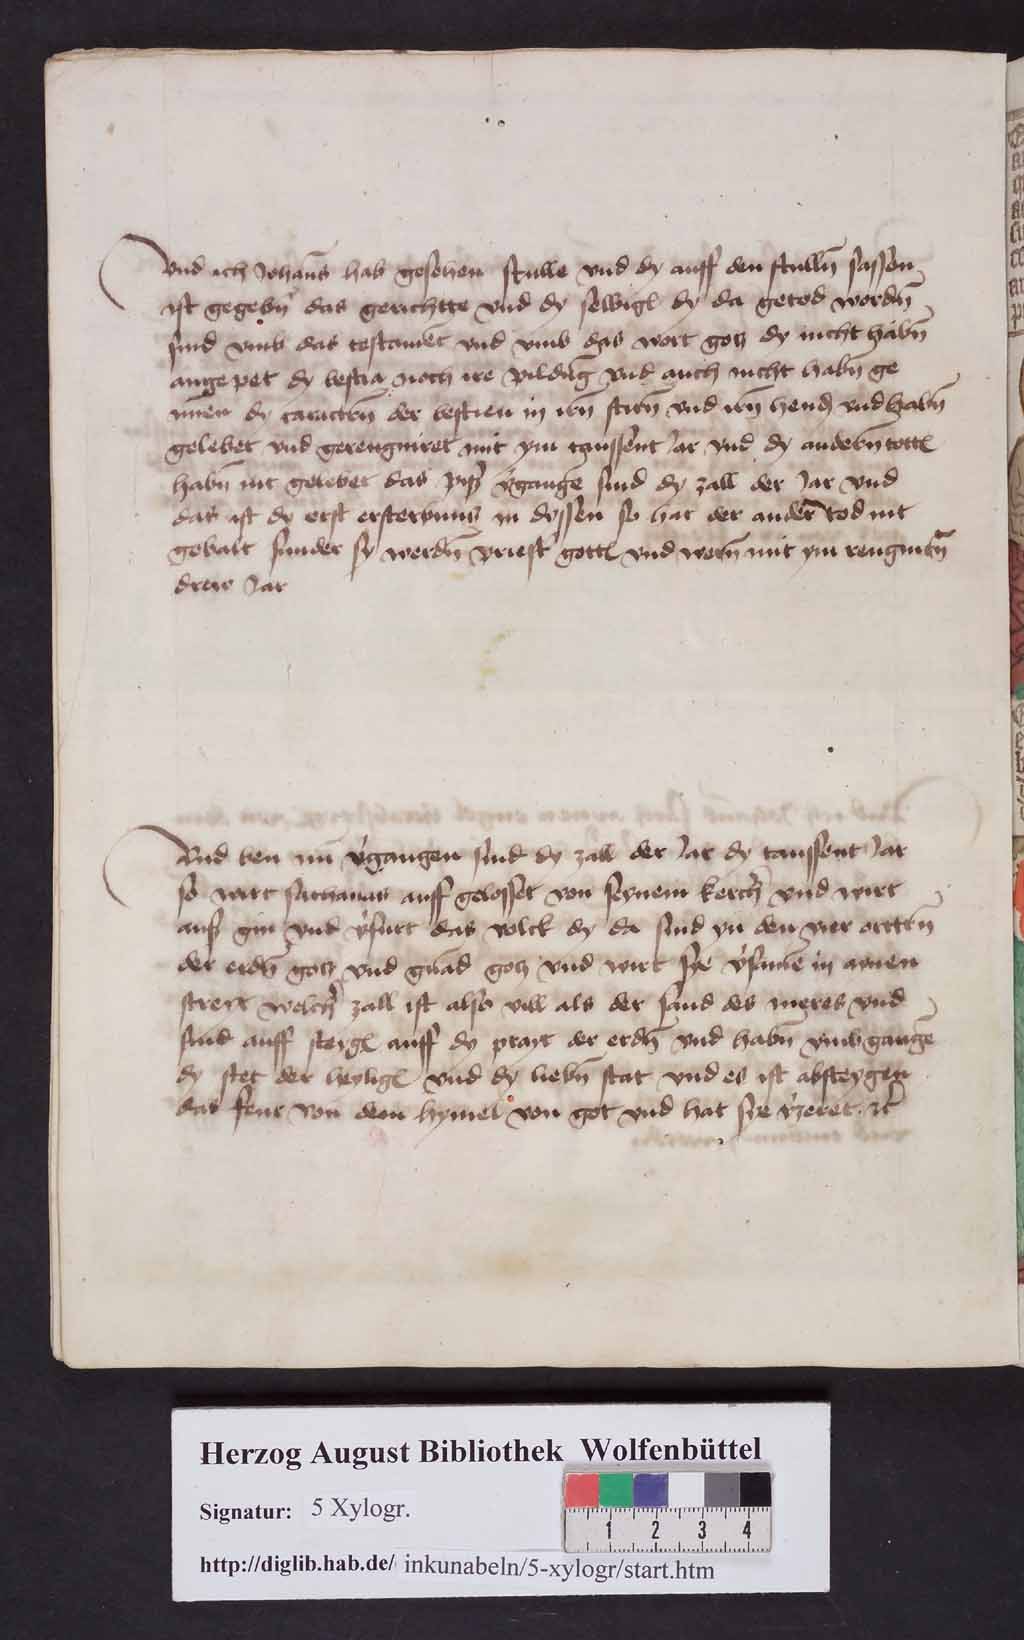 Vnd ich Johans hab gesehen stulle vnd dy auff den stulln sassen
ist gegebn das gerichtte vnd dy selbigen dy da getod wordn
sind vmb das testament vnd vmb das wort gotz dy nicht habn
ange pet dy bestia noch ire pildung vnd auch nicht habn ge
numen dy caractern der bestien in irn stirn vnd irn hend vnd habn
gelebet vnd gerengniret mit ym taussent Jar vnd dy andern totten
habn nit gelebet das pyß v'gangen sind dy zall der Jar vnd
das ist dy erst ersterbung in dyssen so hat der ander tod nit
gebalt sunder sy werdn priest gottes vnd wern mit ym rengnirn
drew Jar
Vnd ben nu v'gangen sind dy zall der Jar dy taussent Jar
so wirt sathanas auff gelosset von seynem kerch' vnd wirt
auß gin vnd v'furt das volck dy da sind yn den vier ortten
der erdn gotz vnd gnad gotz vnd wirt sye v'samen in aynen
streyt welch' zall ist also vill als der sand des meres vnd
sind auff steygen auff dy prayt der erdn vnd habn vmb gangen
dy stet der heyligen vnd dy liebn stat vnd es ist absteygen
das feur von dem hymel von got vnd hat sye v'zeret etc
Herzog August Bibliothek Wolfenbüttel
Signatur: 5 Xylogr.
1 2 3 4
http://diglib.hab.de/ inkunabeln/5-xylogr/start.htm